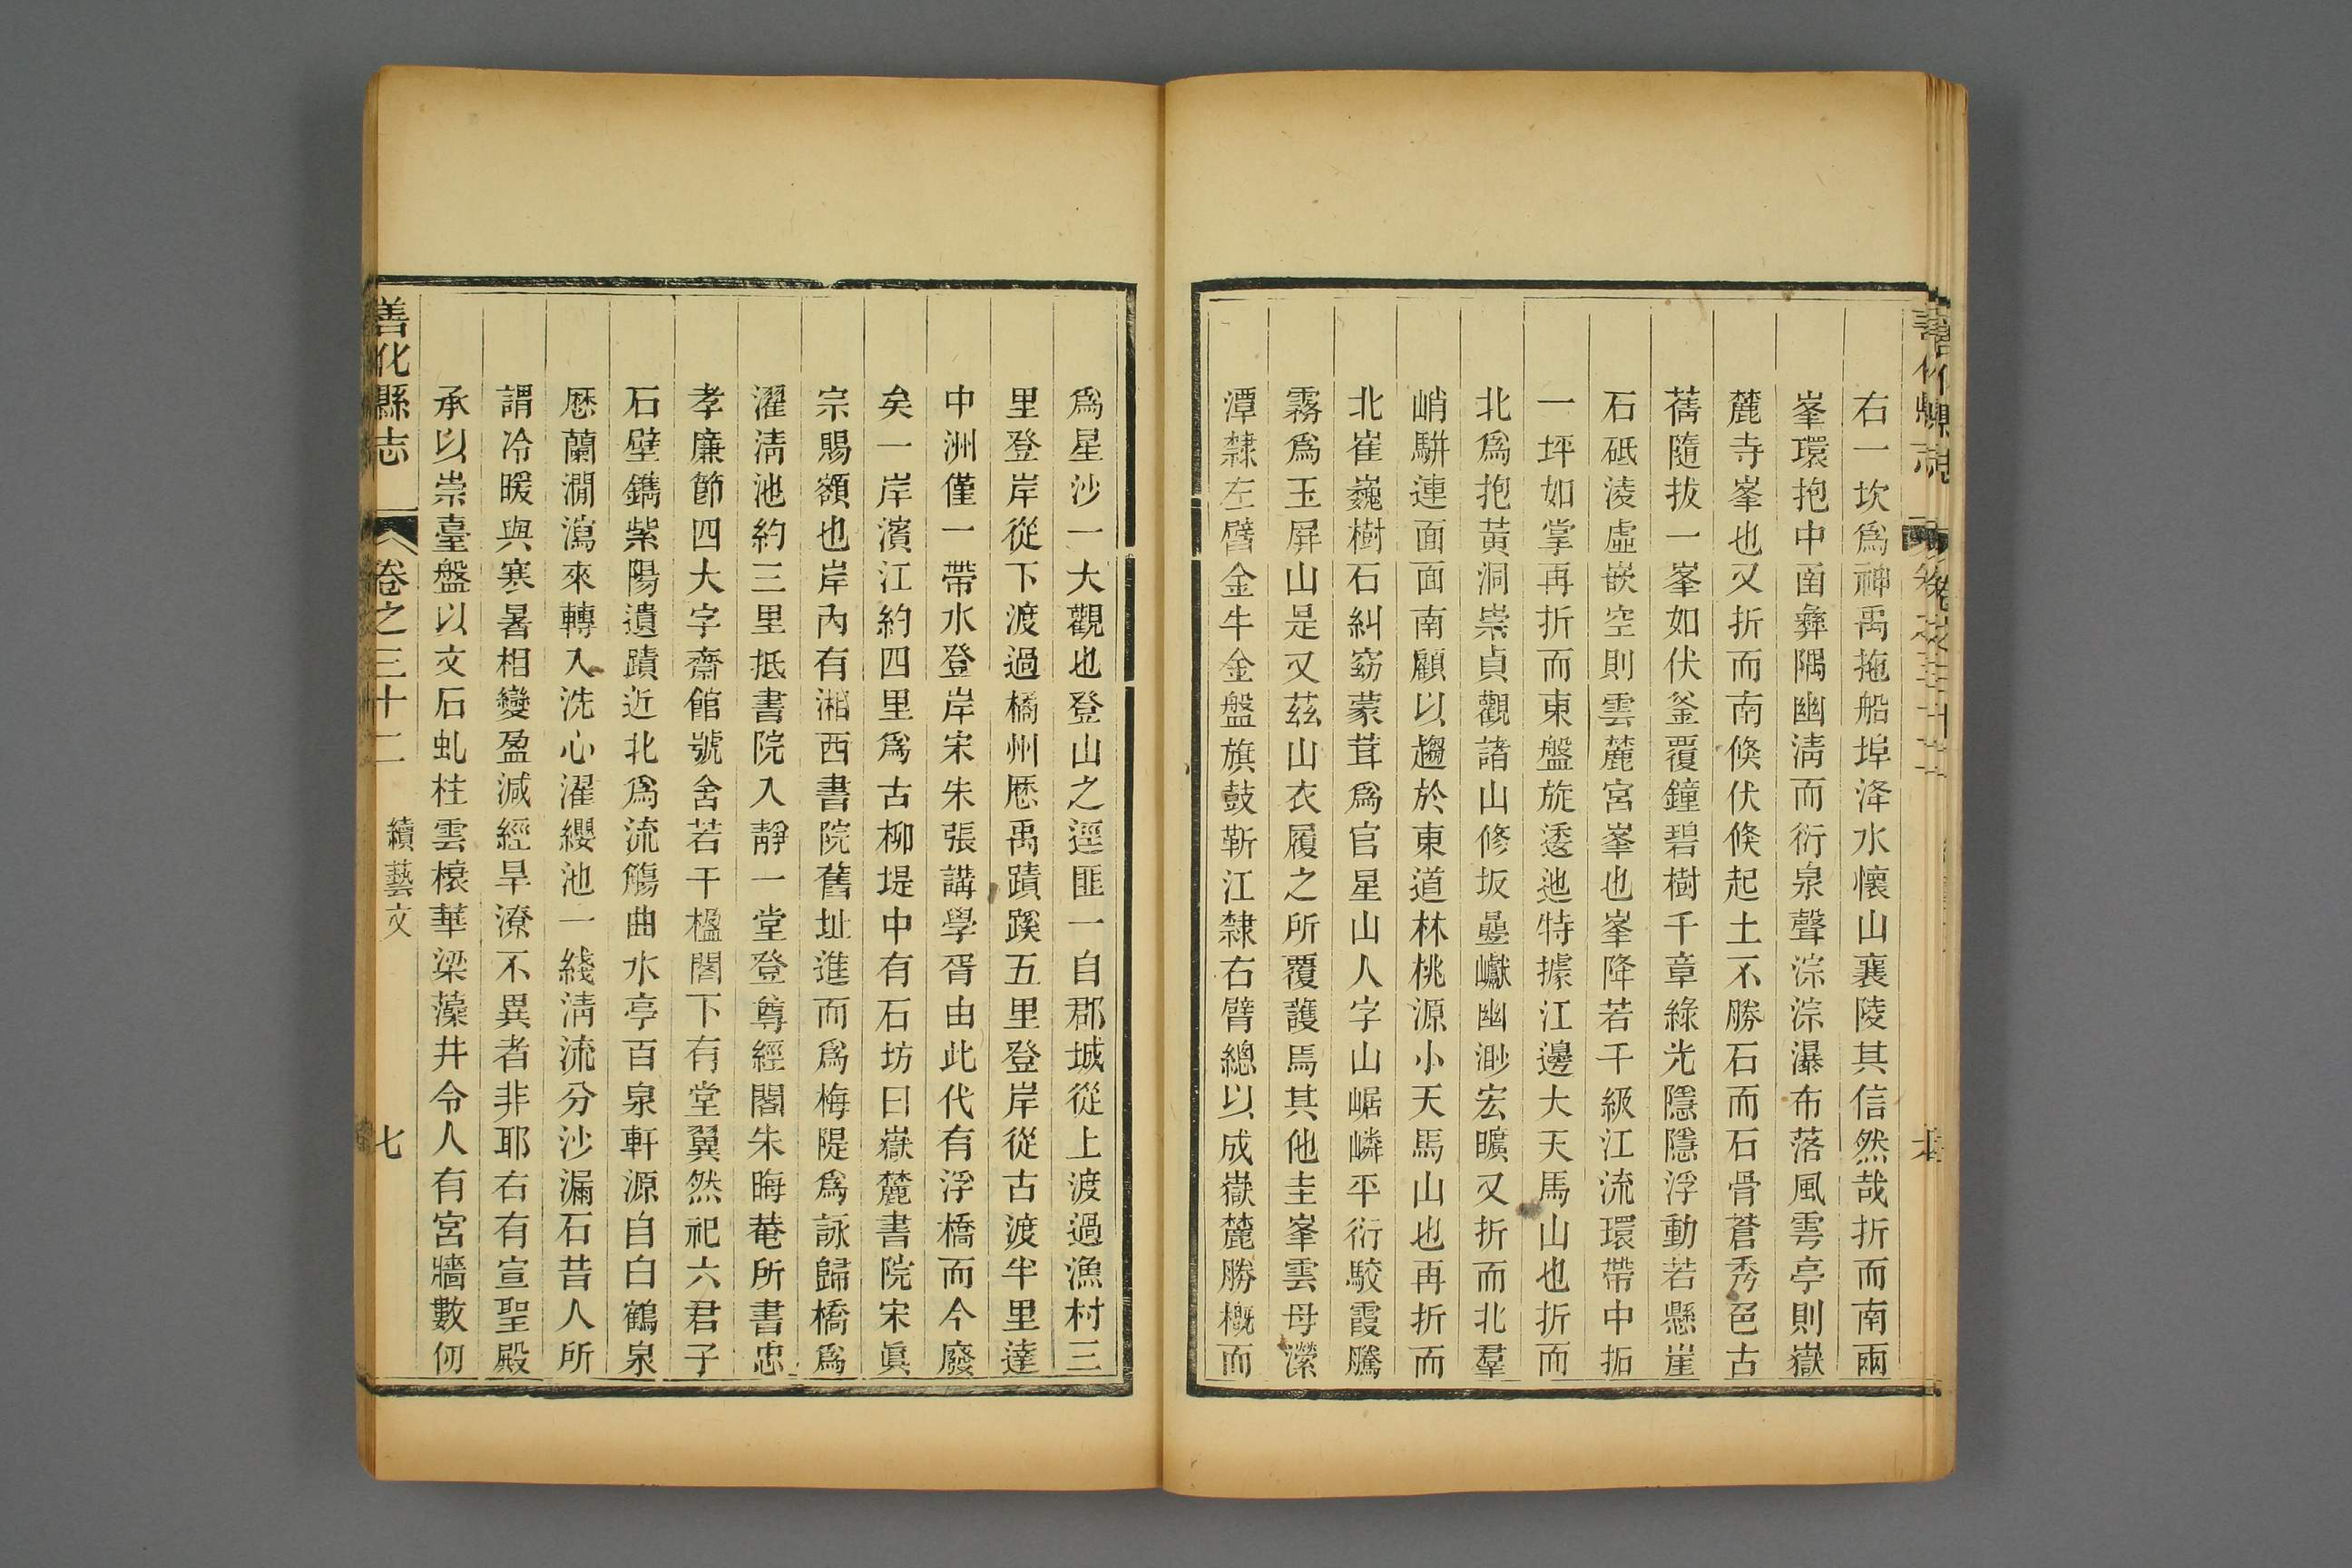 右一坎爲神禹拖船埠洚水懷山襄陵其信然哉折而南兩
峯環抱中南彝隅幽淸而衍泉聲淙淙瀑布落風雩亭則嶽
麓寺峯也又折而南倐伏倐起土不勝石而石骨蒼秀色古
蒨隨拔一峯如伏釜覆鐘碧樹千章綠光隱隱浮動若懸崖
石砥淩虛嵌空則雲麓宮峯也峯降若干級江流環帶中拓
一坪如掌再折而東盤旋逶迤特據江邊大天馬山也折而
北爲抱黃洞崇貞觀諸山修坂曡巘幽渺宏曠又折而北羣
峭駢連面面南顧以趨於東道林桃源小天馬山也再折而
北崔巍樹石糾窈蒙茸爲官星山人字山崌嶙平衍駮霞騰
霧爲玉屏山是又茲山衣履之所覆護焉其他圭峯雲母瀠
潭隸左臂金牛金盤旗鼓靳江隸右臂總以成嶽麓勝槪而
爲星沙一大觀也登山之逕匪一自郡城從上渡過漁村三
里登岸從下渡過橘州歷禹蹟蹊五里登岸從古渡半里達
中洲僅一帶水登岸宋朱張講學胥由此代有浮橋而今廢
矣一岸濱江約四里爲古柳堤中有石坊曰嶽麓書院宋眞
宗賜額也岸內有湘西書院舊址進而爲梅隄爲詠歸橋爲
濯淸池約三里抵書院入靜一堂登尊經閣朱晦菴所書忠
孝廉節四大字齋館號舍若干楹閣下有堂翼然祀六君子
石壁鐫紫陽遺蹟近北爲流觴曲水亭百泉軒源自白鶴泉
歷蘭澗瀉來轉入洗心濯纓池一綫淸流分沙漏石昔人所
謂冷暖與寒暑相變盈減經旱潦不異者非耶右有宣聖殿
承以崇臺盤以文石虬柱雲榱華梁藻井令人有宮牆數仞
善化縣志 卷之三十二 續藝文 七